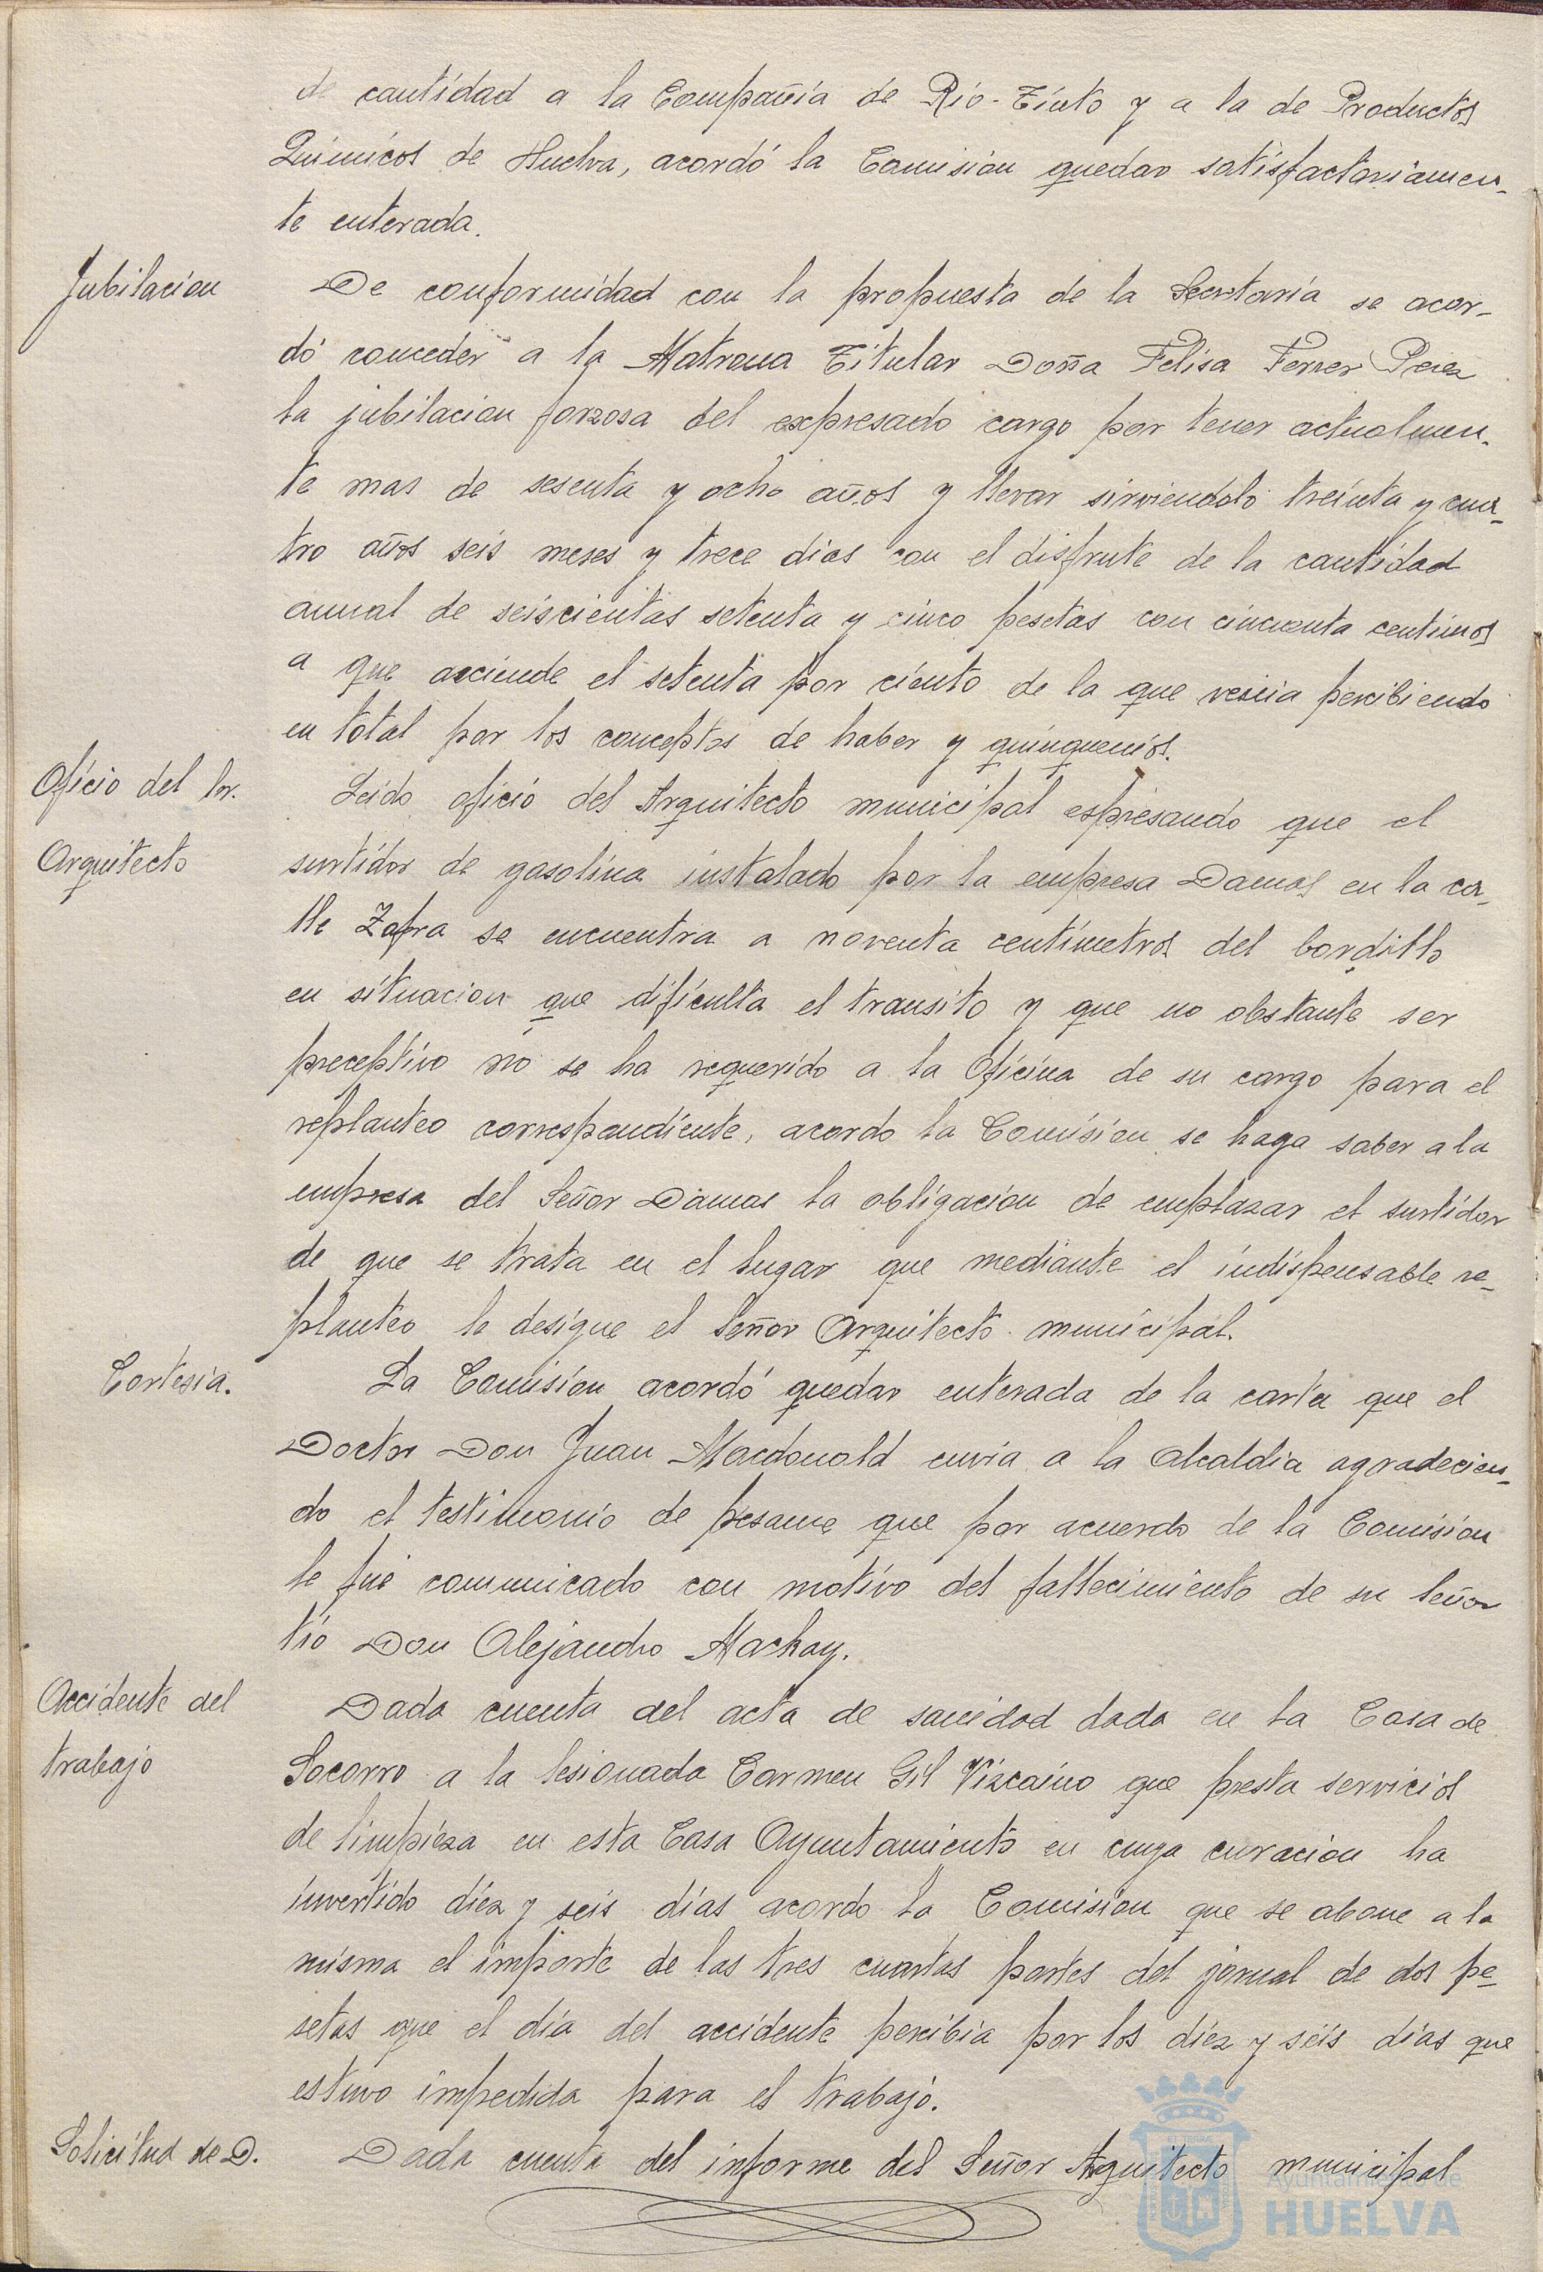 de cantidad a la Compañía de Rio-Tinto y a la de Productos
Químicos de Huelva, acordó la Comision quedar satisfactoriamen-
te enterada.
Jubilacion
De conformidad con la propuesta de la Secretaría se acor-
dó conceder a la Matrona Titular Doña Felisa Ferrer Perez
la jubilacion forzosa del expresado cargo por tener actualmen-
te mas de sesenta y ocho años y llevar sirviendolo treinta y cua-
tro años seis meses y trece dias con el disfrute de la cantidad
anual de seiscientas setenta y cinco pesetas con cincuenta centimos
a que asciende el setenta por ciento de la que venia percibiendo
en total por los conceptos de haber y quinquenios.
Oficio del Sr.
Arquitecto
Leido oficio del Arquitecto municipal espresando que el
surtidor de gasolina instalado por la empresa Damas en la ca-
lle Zafra se encuentra a noventa centímetros del bordillo
en situacion que dificulta el transito y que no obstante ser
preceptivo no se ha requerido a la Oficina de su cargo para el
replanteo correspondiente, acordo la Comision se haga saber a la
empresa del Señor Damas la obligacion de emplazar el surtidor
de que se trata en el lugar que mediante el indispensable re-
planteo le designe el Señor Arquitecto municipal.
Cortesia.
La Comision acordó quedar enterada de la carta que el
Doctor Don Juan Macdonald envia a la Alcaldia agradecien-
do el testimonio de pesame que por acuerdo de la Comision
le fué comunicado con motivo del fallecimiento de su Señor
tío Don Alejandro Mackay.
Accidente del
trabajo
Dada cuenta del acta de sanidad dada en la Casa de
Socorro a la lesionada Carmen Gil Vizcaino que presta servicios
de limpieza en esta Casa Ayuntamiento en cuya curacion ha
invertido diez y seis días acordo la Comision que se abone a la
misma el importe de las tres cuartas partes del jornal de dos pe-
setas que el día del accidente percibia por los diez y seis dias que
estuvo impedida para el trabajo.
Solicitud de D.
Dada cuenta del informe del Señor Arquitecto municipal
Ayuntamiento de
HUELVA